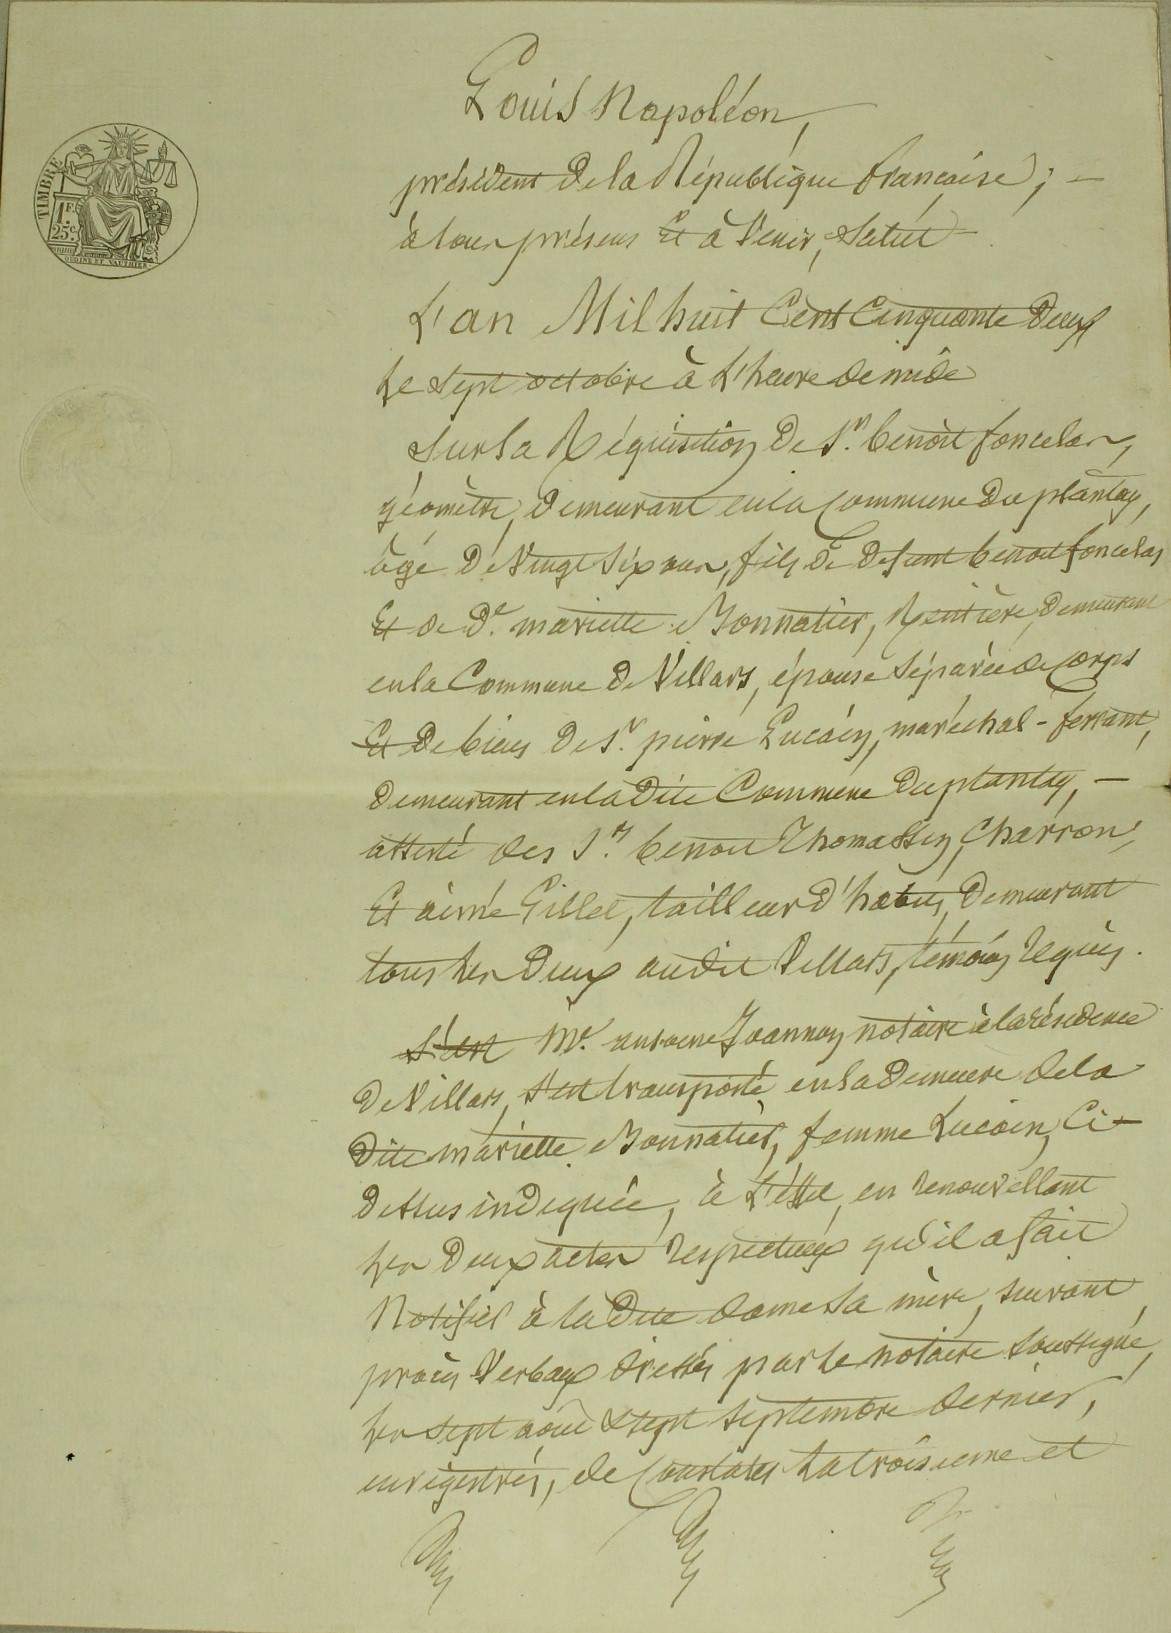 TIMBRE
1F.
25c.
Louis Napoléon,
président de la République française ; —
à tous présens Et à Venir, Salut
L'an Mil huit Cent Cinquante Deux
Le Sept octobre à L'heure de midi
Sur la Réquisition de Sr. benoit foncelas,
géomètre, demeurant en la Commune du plantay,
âgé De Vingt Six ans, fils de Defunt benoit foncelas
Et de De. mariette Bonnatier, Rentière, demeurant
en la Commune De Villars, épouse Séparée de Corps
Et De biens De Sr. pierre Lucain, maréchal-ferrant,
Demeurant en la Dite Commune Du plantay, —
assisté des Srs. benoit Thomassin, Charron,
Et aimé Gillet, tailleur d'habits, Demeurant
tous Les Deux audit Villars, témoins requis.
S'est Me. antoine Joannon notaire à la résidence
De Villars, S'est transporté en la Demeure de la
Dite mariette Bonnatier, femme Lucain, Ci-
Dessus indiquée, à L'effet, en renouvellant
Les Deux actes respectueux qu'il a fait
Notifier à la Dite dame Sa mère, Suivant
procès Verbaux dressés par Le notaire Soussigné,
Les Sept août & Sept Septembre dernier,
enregistrés, de Constater La troisieme et